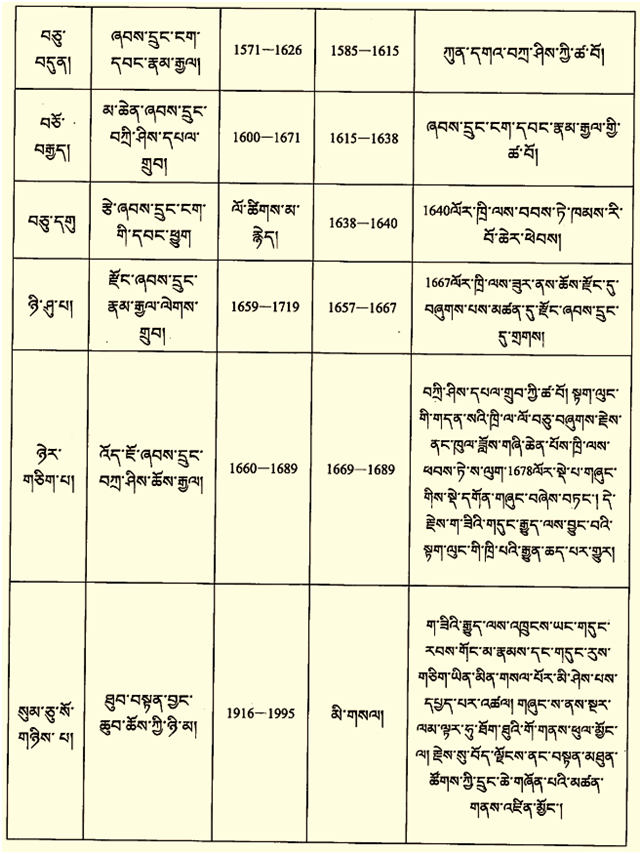 བཅུ་
བདུན།
ཞབས་དྲུང་ངག་
དབང་རྣམ་རྒྱལ།
1571—1626
1585—1615
ཀུན་དགའ་བཀྲ་ཤིས་ཀྱི་ཚ་བོ།
བཅོ་
བརྒྱད།
མ་ཆེན་ཞབས་དྲུང་
བཀྲི་ཤིས་དཔལ་
གྲུབ།
1600—1671
1615—1638
ཞབས་དྲུང་ངག་དབང་རྣམ་རྒྱལ་གྱི་
ཚ་བོ།
བཅུ་དགུ
རྩེ་ཞབས་དྲུང་ངག་
གི་དབང་ཕྱུག
ལོ་ཚིགས་མ་
རྙེད།
1638—1640
1640ལོར་ཁྲི་ལས་བབས་ཏེ་ཁམས་རི་
བོ་ཆེར་ཕེབས།
ཉི་ཤུ་པ།
རྫོང་ཞབས་དྲུང་
རྣམ་རྒྱལ་ལེགས་
གྲུབ།
1659—1719
1657—1667
1667ལོར་ཁྲི་ལས་ཟུར་ནས་ཆོས་རྫོང་དུ་
བཞུགས་པས་མཚན་དུ་རྫོང་ཞབས་དྲུང་
དུ་གྲགས།
ཉེར་
གཅིག་པ།
འོད་ཇོ་ཞབས་དྲུང་
བཀྲ་ཤིས་ཆོས་རྒྱལ།
1660—1689
1669—1689
བཀྲི་ཤིས་དཔལ་གྲུབ་ཀྱི་ཚ་བོ། སྟག་ལུང་
གི་གདན་སའི་ཁྲི་ལ་ལོ་བཅུ་བཞུགས་རྗེས་
ནང་ཁུལ་བློས་གཞི་ཆེན་པོས་ཁྲི་ལས་
ཕབས་ཏེ་ས་ལུག་1678ལོར་སྡེ་པ་གཞུང་
གིས་སྡེ་དགོན་གཞུང་བཞེས་བཏང་། དེ་
རྗེས་ག་ཟིའི་གདུང་རྒྱུད་ལས་བྱུང་བའི་
སྟག་ལུང་གི་ཁྲི་པའི་རྒྱུན་ཆད་པར་གྱུར།
སུམ་ཅུ་སོ་
གཉིས་པ།
ཐུབ་བསྟན་བྱང་
ཆུབ་ཆོས་ཀྱི་ཉི་མ།
1916—1995
མི་གསལ།
ག་ཟིའི་རྒྱུད་ལས་འཁྲུངས་ཡང་གདུང་
རབས་གོང་མ་རྣམས་དང་གདུང་རུས་
གཅིག་ཡིན་མིན་གསལ་པོར་མི་ཤེས་པས་
དཔྱད་པར་འཚལ། གཞུང་ས་ནས་སྔར་
ལམ་ལྟར་ཧུ་ཐོག་ཐུའི་གོ་གནས་ཕུལ་མྱོང་
ལ། རྗེས་སུ་བོད་ལྗོངས་ནང་བསྟན་མཐུན་
ཚོགས་ཀྱི་དྲུང་ཆེ་གཞོན་པའི་མཚན་
གནས་འཛིན་མྱོང་།